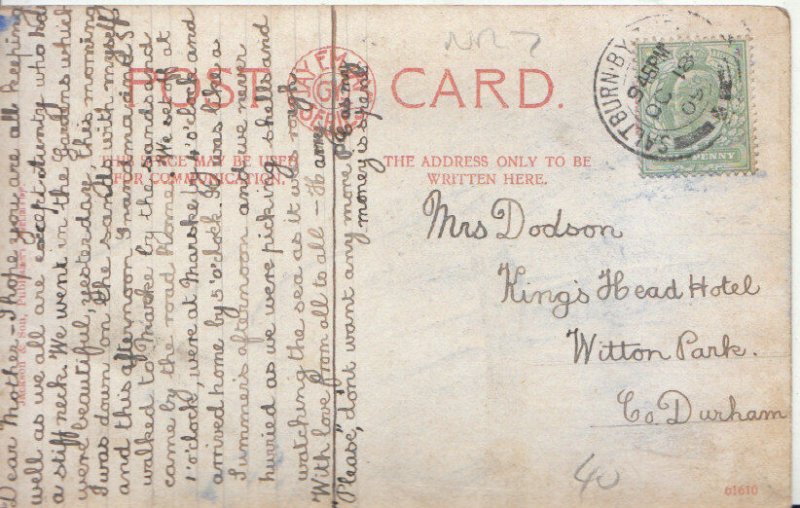 POST CARD.
THIS SPACE MAY BE USED
FOR COMMUNICATION.
THE ADDRESS ONLY TO BE
WRITTEN HERE.
Dear Mother - I hope you are all keeping
well as we all are except Aunty who had
a stiff neck. We went in the Gardens which
were beautiful, yesterday. This morning
I was down on the sands with myself
and this afternoon Grandma and I
walked to Marske by the sands and
came by the road home. We set off at
1 o'clock, were at Marske by 4 o'clock and
arrived home by 5 o'clock. It was like a
Summer's afternoon and we never
hurried as we were picking shells and
watching the sea as it was rough.
With love from all to all - Harry
"Please," don't want any more P.C. as my
money is spent
Mrs Dodson
King's Head Hotel
Witton Park.
Co. Durham
SALTBURN-BY
9 45PM
OC 18
PENNY
NR 7
40
61610
& Son,